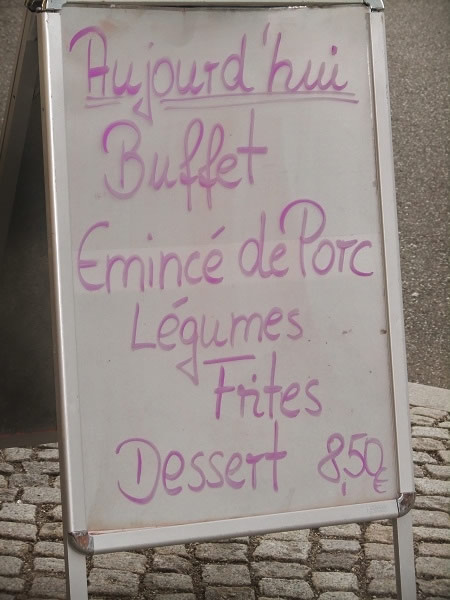 Aujourd'hui
Buffet
Emincé de Porc
Légumes
Frites
Dessert 8,50 €